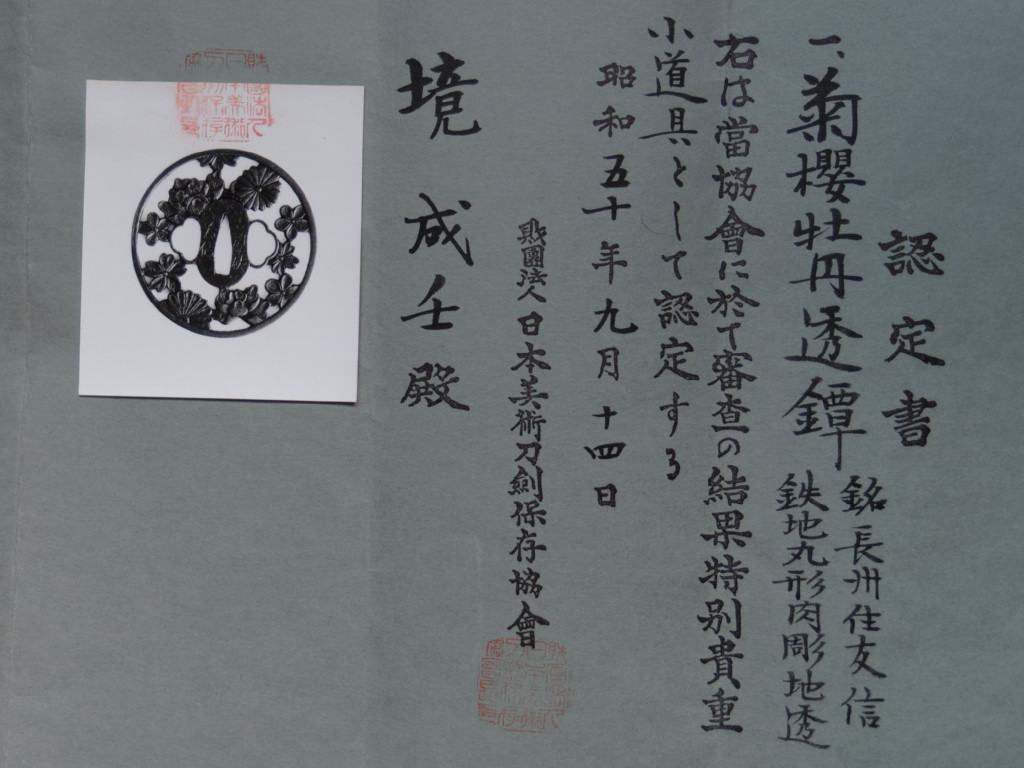 認定書
一、菊櫻牡丹透鐔
銘長州住友信
鉄地丸形肉彫地透
右は當協會に於て審査の結果特別貴重
小道具として認定する
昭和五十年九月十四日
財團法人日本美術刀劍保存協會
境成壬殿